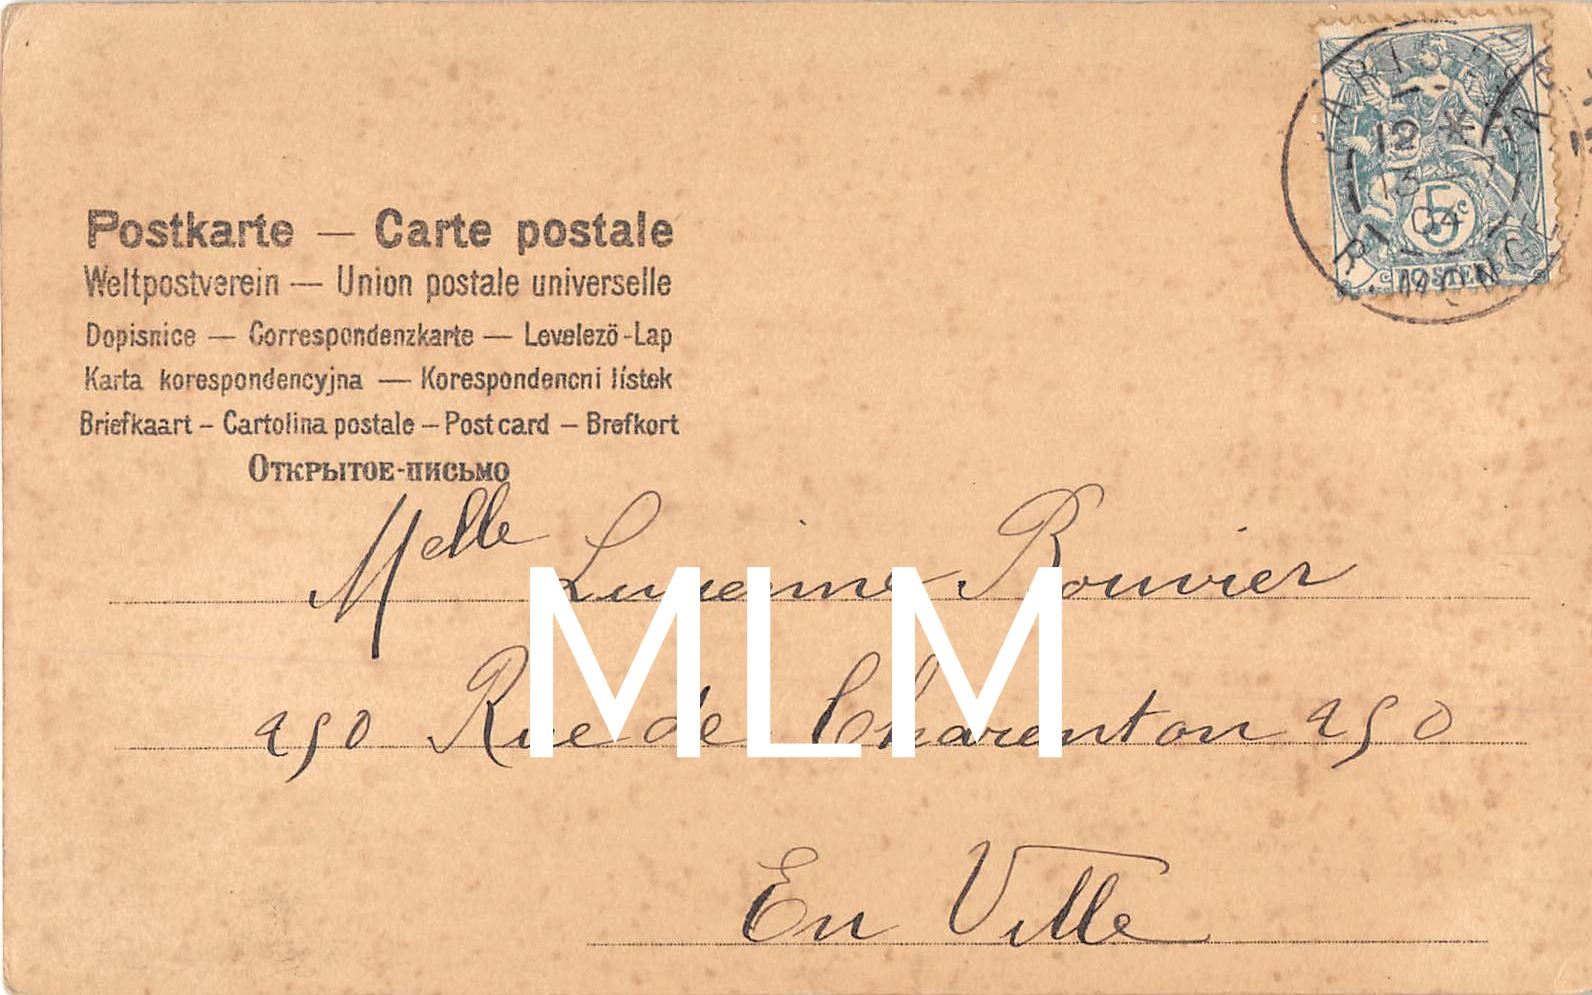 Postkarte — Carte postale
Weltpostverein — Union postale universelle
Dopisnice — Correspondenzkarte — Levelező-Lap
Karta korespondencyjna — Korespondencni lístek
Briefkaart – Cartolina postale – Post card – Brefkort
Открытое-письмо
PARIS
12 *
13
04
R. MONGE
5c
POSTES
Melle Lucienne Bouvier
250 Rue de Charenton 250
En Ville
MLM